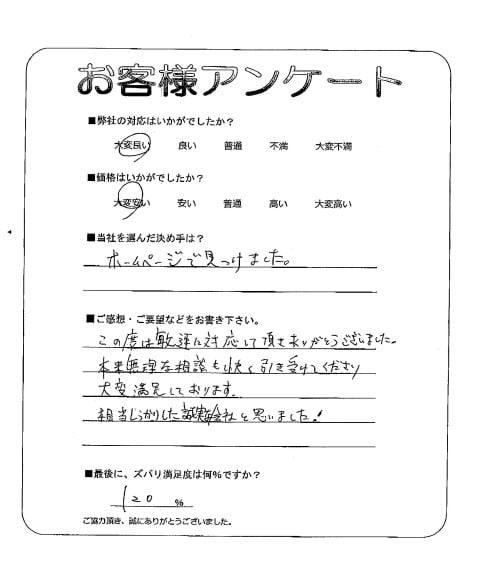 お客様アンケート
■弊社の対応はいかがでしたか？
大変良い　良い　普通　不満　大変不満
■価格はいかがでしたか？
大変安い　安い　普通　高い　大変高い
■当社を選んだ決め手は？
ホームページで見つけました。
■ご感想・ご要望などをお書き下さい。
この度は敏速に対応して頂きありがとうございました。
本来無理な相談も快く引き受けてくださり
大変満足しております。
相当しっかりした誠実な会社と思いました！
■最後に、ズバリ満足度は何%ですか？
120 %
ご協力頂き、誠にありがとうございました。